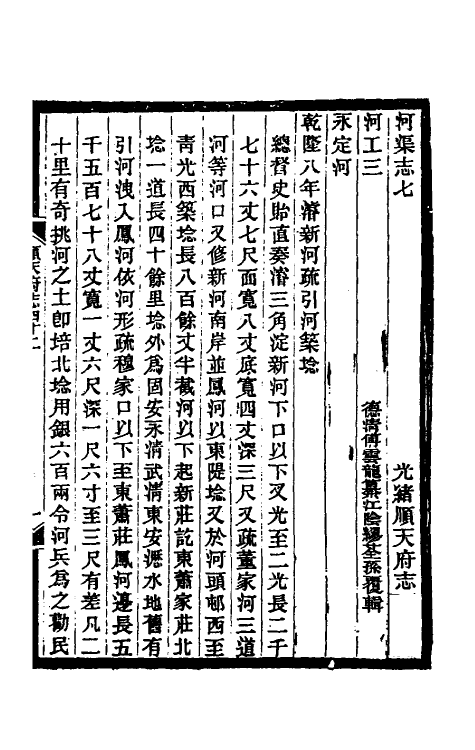 河渠志七　　光緒順天府志
河工三　　德淸傅雲龍纂江陰繆荃孫覆輯
永定河
乾隆八年濬新河疏引河築埝
總督史貽直奏濬三角淀新河下口以下叉光至二光長二千
七十六丈七尺面寬八丈底寬四丈深三尺又疏董家河三道
河等河口又修新河南岸並鳳河以東隄埝又於河頭邨西至
靑光西築埝長八百餘丈半截河以下起新莊訖東蕭家莊北
埝一道長四十餘里埝外爲固安永淸武淸東安瀝水地舊有
引河洩入鳳河依河形疏穆家口以下至東蕭莊鳳河邊長五
千五百七十八丈寬一丈六尺深一尺六寸至三尺有差凡二
十里有奇挑河之土卽培北埝用銀六百兩令河兵爲之勸民
順天府志四十二